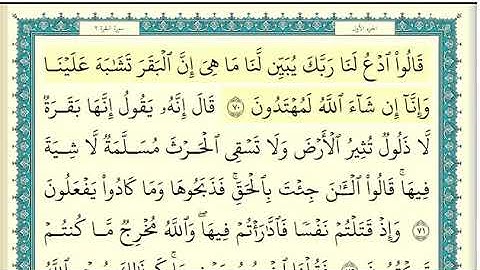 سورة البقرة ٢ الجزء الأول
قَالُوا۟ ٱدْعُ لَنَا رَبَّكَ يُبَيِّن لَّنَا مَا هِىَ إِنَّ ٱلْبَقَرَ تَشَـٰبَهَ عَلَيْنَا
وَإِنَّآ إِن شَآءَ ٱللَّهُ لَمُهْتَدُونَ ٧٠ قَالَ إِنَّهُۥ يَقُولُ إِنَّهَا بَقَرَةٌ
لَّا ذَلُولٌ تُثِيرُ ٱلْأَرْضَ وَلَا تَسْقِى ٱلْحَرْثَ مُسَلَّمَةٌ لَّا شِيَةَ
فِيهَا ۚ قَالُوا۟ ٱلْـَٔـٰنَ جِئْتَ بِٱلْحَقِّ ۚ فَذَبَحُوهَا وَمَا كَادُوا۟ يَفْعَلُونَ
٧١ وَإِذْ قَتَلْتُمْ نَفْسًا فَٱدَّٰرَْٰٔتُمْ فِيهَا ۖ وَٱللَّهُ مُخْرِجٌ مَّا كُنتُمْ